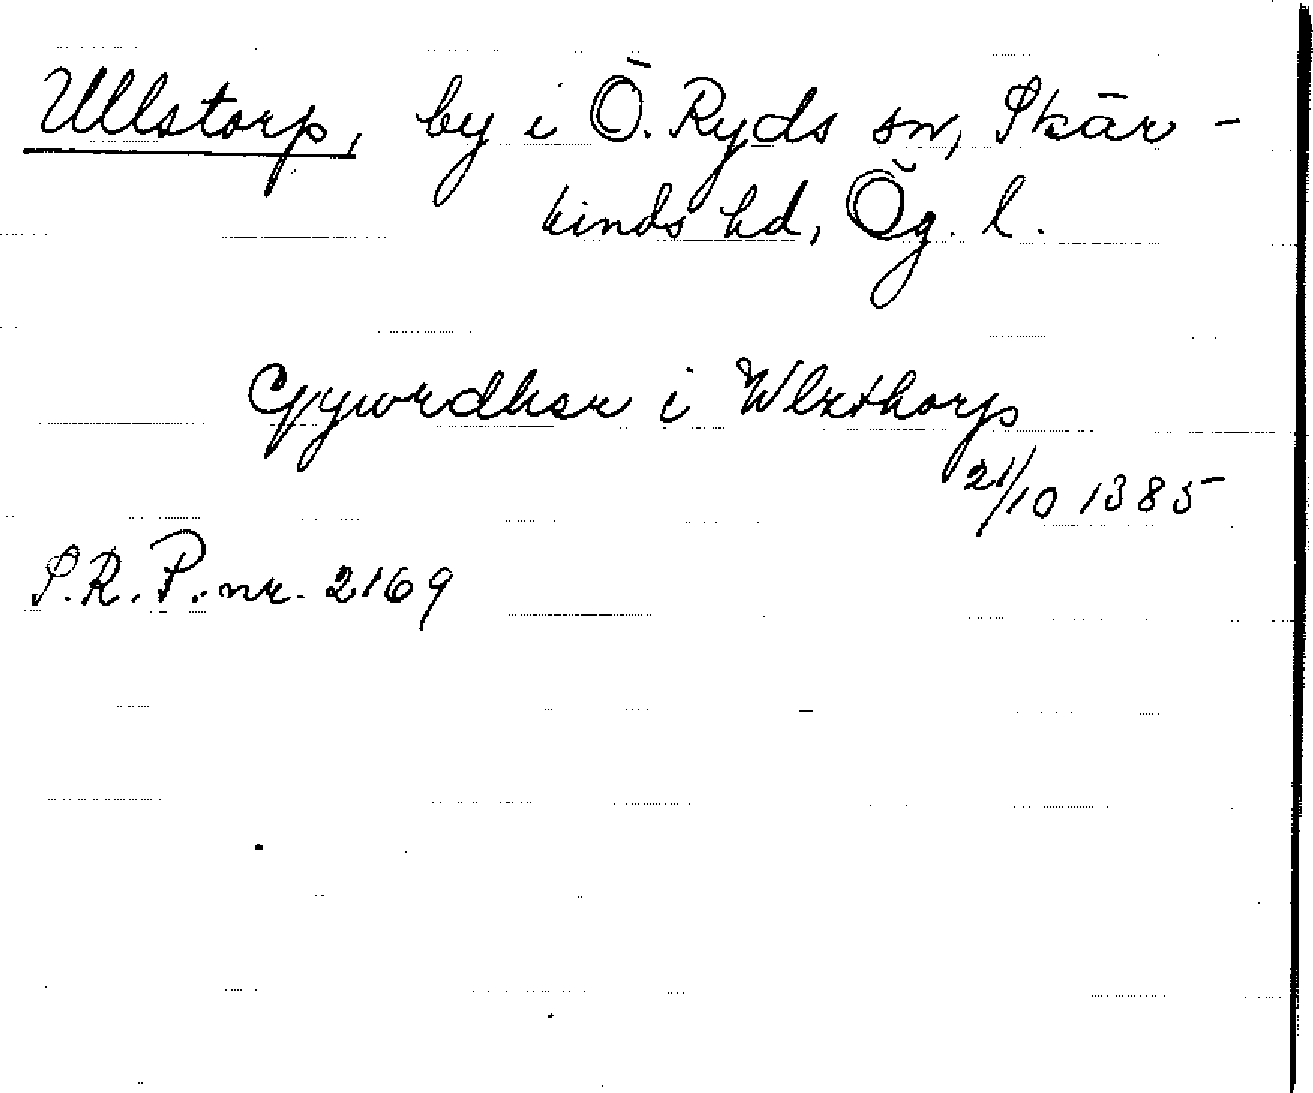 Ullstorp, by i Ö. Ryds sn, Skär-
kinds hd, Ög. l.
Gywrdhser i Wlxthorp
21/10 1385
S.R.P. nr. 2169